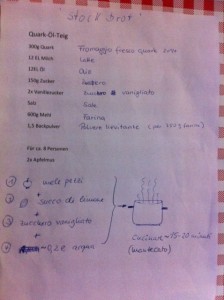 "Stock brot"
Quark-Öl-Teig
300g Quark Fromaggio fresco quark
12 EL Milch Latte
12EL Öl Olio
150g Zucker Zucchero
2x Vanillezucker vanigliato
Salz Sale
600g Mehl Farina
1,5 Backpulver Polvere lievitante (per 750 g farina)
Für ca. 8 Personen
2x Apfelmus
1) mele pezzi
+
2) succo di limone
+
3) zucchero vanigliato
+
4) ~0,2 l acqua
Cucinare ~15-20 minuti
(mantecato)